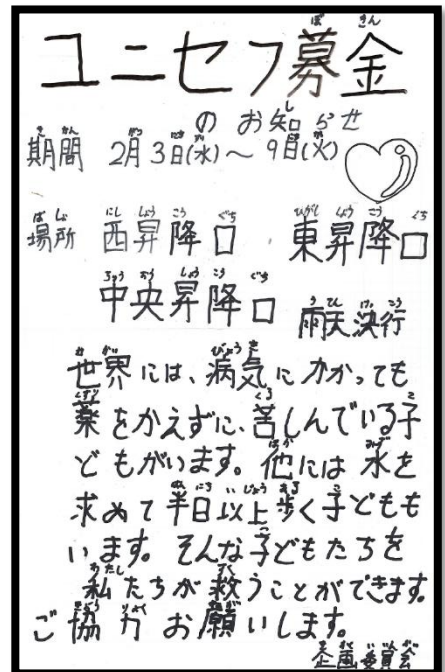 ユニセフ募金
のお知らせ
期間 2月3日(水)～9日(火)
場所 西昇降口、東昇降口
中央昇降口 雨天決行
世界には、病気にかかっても
薬をかえずに、苦しんでいる子
どもがいます。他には水を
求めて半日以上歩く子どもも
います。そんな子どもたちを
私たちが救うことができます。
ご協力お願いします。
企画委員会